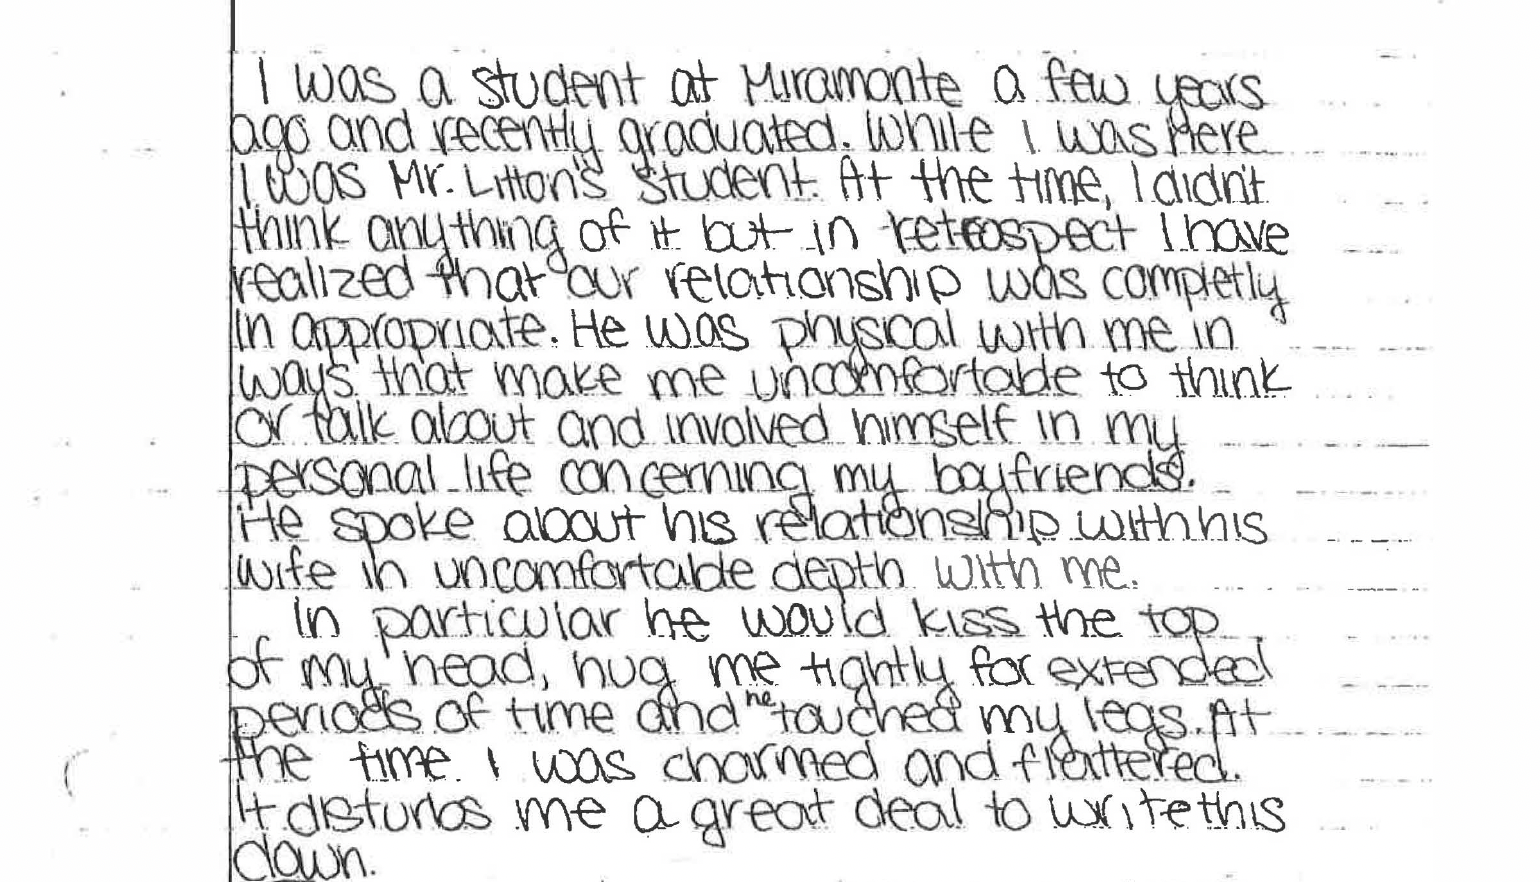 I was a student at Miramonte a few years
ago and recently graduated. While I was Here
I was Mr. Litton's student. At the time, I didn't
think anything of it but in retrospect I have
realized that our relationship was completly
in appropriate. He was physical with me in
ways that make me uncomfortable to think
or talk about and involved himself in my
personal life concerning my boyfriends.
He spoke about his relationship with his
wife in uncomfortable depth with me.
In particular he would kiss the top
of my head, hug me tightly for extended
periods of time and he touched my legs. At
the time I was charmed and flattered.
It disturbs me a great deal to write this
down.